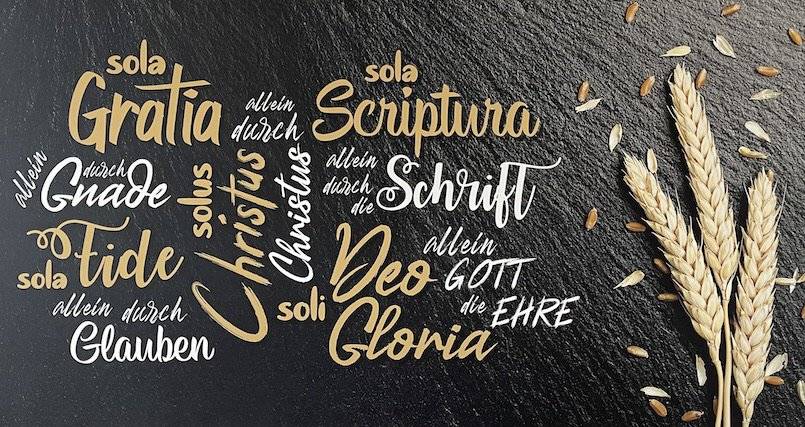 sola
Gratia
allein
durch
Gnade
sola Fide
allein durch
Glauben
solus
Christus
allein
durch
Christus
sola
Scriptura
allein
durch
die
Schrift
soli
Deo
Gloria
allein
GOTT
die EHRE